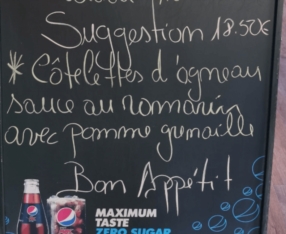 Suggestion 18.50€
* Côtelettes d'agneau
sauce au romarin
avec pomme grenaille
Bon Appétit
MAXIMUM
TASTE
ZERO SUGAR
pepsi